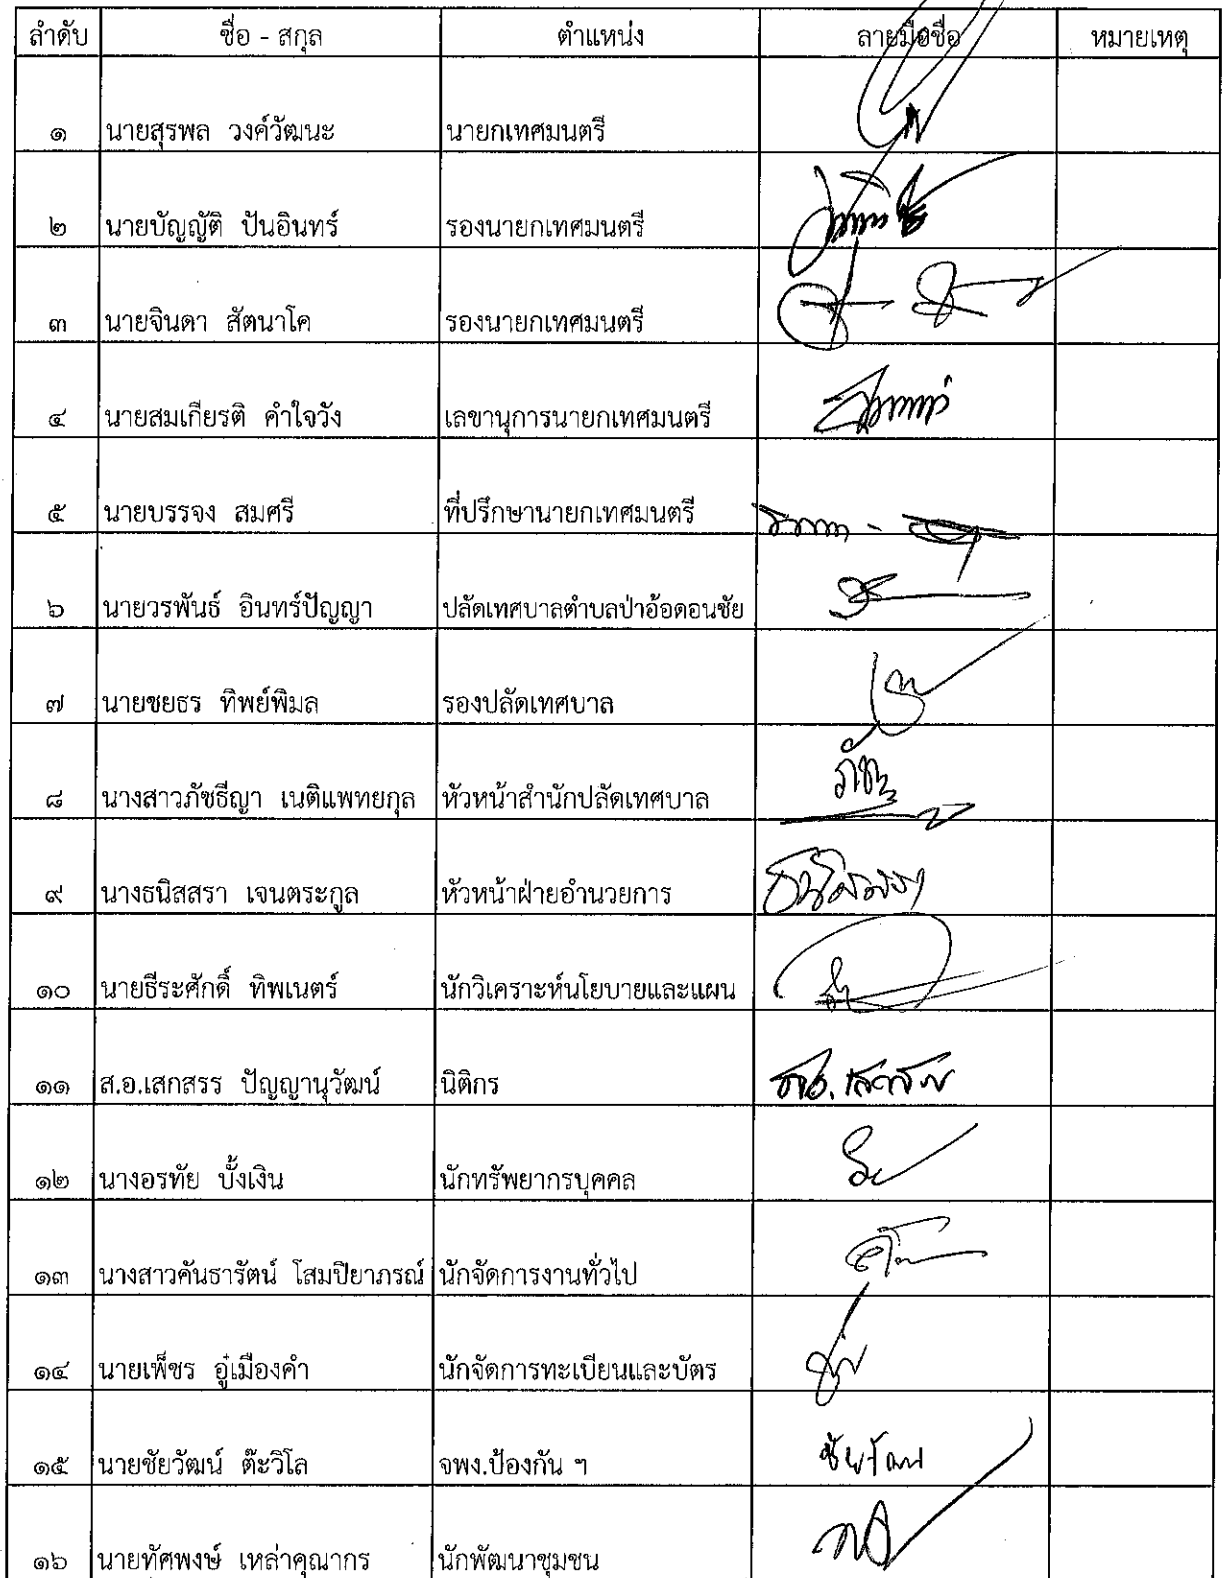 ลำดับ ชื่อ - สกุล ตำแหน่ง ลายมือชื่อ หมายเหตุ
๑ นายสุรพล วงค์วัฒนะ นายกเทศมนตรี
๒ นายบัญญัติ ปันอินทร์ รองนายกเทศมนตรี
๓ นายจินดา สัตนาโค รองนายกเทศมนตรี
๔ นายสมเกียรติ คำใจวัง เลขานุการนายกเทศมนตรี
๕ นายบรรจง สมศรี ที่ปรึกษานายกเทศมนตรี
๖ นายวรพันธ์ อินทร์ปัญญา ปลัดเทศบาลตำบลป่าอ้อดอนชัย
๗ นายชยธร ทิพย์พิมล รองปลัดเทศบาล
๘ นางสาวภัชธีญา เนติแพทยกุล หัวหน้าสำนักปลัดเทศบาล
๙ นางธนิสสรา เจนตระกูล หัวหน้าฝ่ายอำนวยการ
๑๐ นายธีระศักดิ์ ทิพเนตร์ นักวิเคราะห์นโยบายและแผน
๑๑ ส.อ.เสกสรร ปัญญานุวัฒน์ นิติกร ส.อ. เสกสรร
๑๒ นางอรทัย บั้งเงิน นักทรัพยากรบุคคล
๑๓ นางสาวคันธารัตน์ โสมปิยาภรณ์ นักจัดการงานทั่วไป
๑๔ นายเพ็ชร อู๋เมืองคำ นักจัดการทะเบียนและบัตร
๑๕ นายชัยวัฒน์ ต๊ะวิโล จพง.ป้องกัน ฯ ชัยวัฒน์
๑๖ นายทัศพงษ์ เหล่าคุณากร นักพัฒนาชุมชน